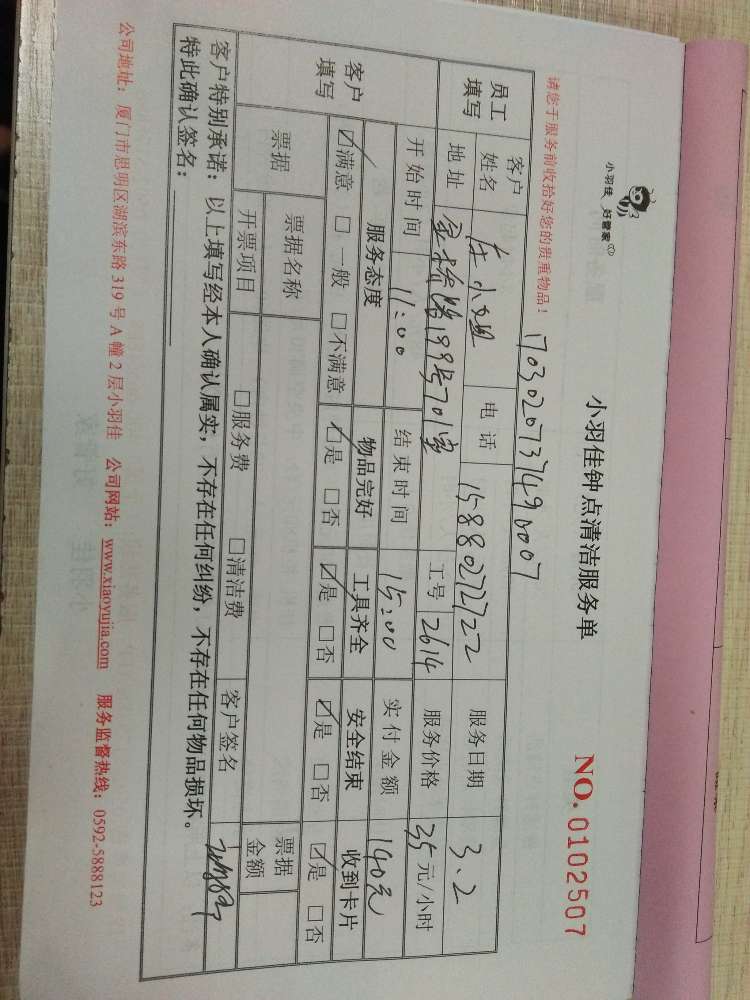 小羽佳 好管家
小羽佳钟点清洁服务单
NO.0102507
请您于服务前收拾好您的贵重物品！
员工填写
客户姓名 小姐 电话 15880272722 服务日期 3.2
地址 199号701室 工号 2614 服务价格 35元/小时
客户填写
开始时间 11:00 结束时间 15:00 实付金额 140元
服务态度 物品完好 工具齐全 安全结束 收到卡片
☑满意 □一般 □不满意 ☑是 □否 ☑是 □否 ☑是 □否 ☑是 □否
票据 票据名称 票据金额
开票项目 □服务费 □清洁费 客户签名
客户特别承诺：以上填写经本人确认属实，不存在任何纠纷，不存在任何物品损坏。
特此确认签名：
公司地址：厦门市思明区湖滨东路319号A幢2层小羽佳 公司网站：www.xiaoyujia.com 服务监督热线：0592-5888123